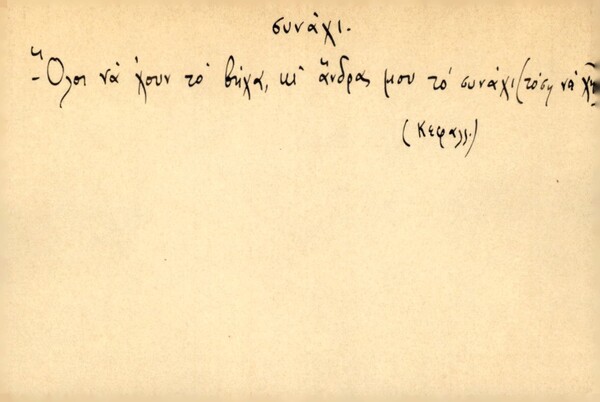 συνάχι.
- Ὅλοι νἄ χουν τὸ βήχα, κι ἄνδρας μου τὸ συνάχι (τόση νἄ
(Κεφαλλ.)